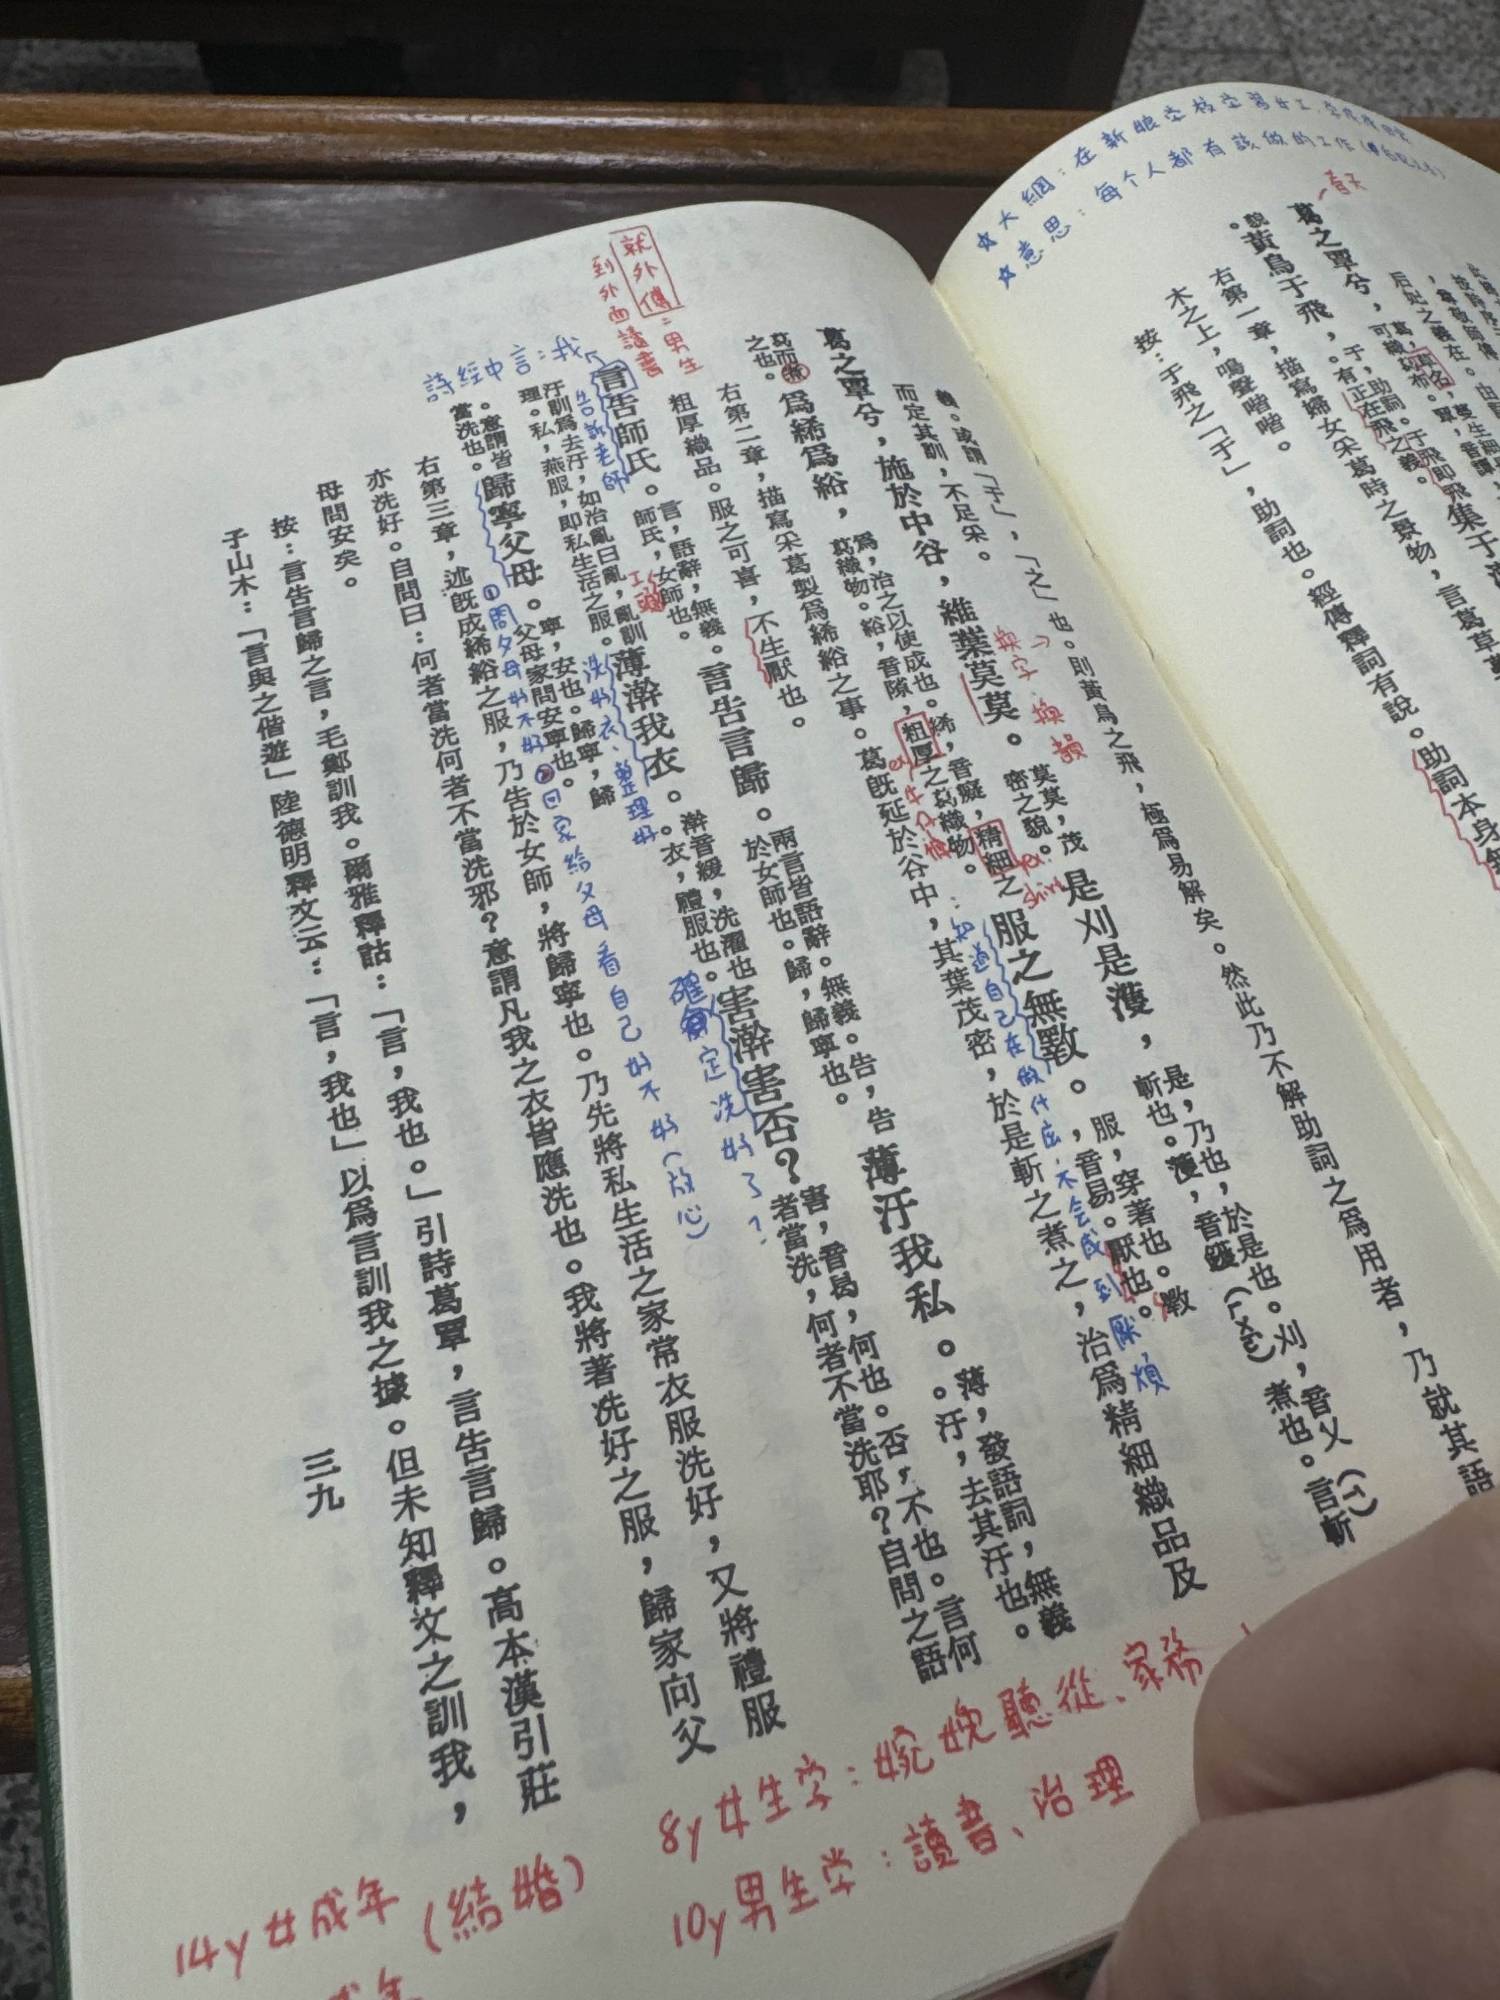 ☆大綱：在新娘学校学習女工
☆意思：每个人都有該做的工作
春天
葛之覃兮，
可織葛布。覃，音譚，
于，助詞。于飛即飛
正在飛之義。
貌。黃鳥于飛，
集于
右第一章，描寫婦女采葛時之景物，言葛草
木之上，鳴聲喈喈。
按：于飛之「于」，助詞也。經傳釋詞有說。助詞本身
義。或謂「于」，「之」也。則黃鳥之飛，極爲易解矣。然此乃不解助詞之爲用者，乃就其語
而定其訓，不足采。
葛之覃兮，施於中谷，維葉莫莫。
莫莫，茂
密之貌。
是刈是濩，
是，乃也，於是也。刈，音乂（ㄧˋ）
斬也。濩，音鑊（ㄏㄨㄛˋ）煮也。言斬
葛而煮
之也。
爲絺爲綌，
爲，治之以使成也。絺，音癡，精細之
葛織物。綌，音隙，粗厚之葛織物。
服之無斁。
服，穿著也。斁
，音易。厭也。
右第二章，描寫采葛製爲絺綌之事。葛旣延於谷中，其葉茂密，於是斬之煮之，治爲精細織品及
粗厚織品。服之可喜，不生厭也。
言告師氏。
言，語辭，無義。
師氏，女師也。
言告言歸。
兩言皆語辭。無義。告，告
於女師也。歸，歸寧也。
薄汙我私。
薄，發語詞，無義
。汙，去其汙也。
汙訓爲去汙，如治亂曰亂，亂訓
理。私，燕服，即私生活之服。
薄澣我衣。
澣音緩，洗濯也
。衣，禮服也。
害澣害否？
害，音曷，何也。否，不也。言何
者當洗，何者不當洗耶？自問之語
。意謂皆
當洗也。
歸寧父母。
寧，安也。歸寧，歸
父母家問安寧也。
右第三章，述旣成絺綌之服，乃告於女師，將歸寧也。乃先將私生活之家常衣服洗好，又將禮服
亦洗好。自問曰：何者當洗何者不當洗邪？意謂凡我之衣皆應洗也。我將著洗好之服，歸家向父
母問安矣。
按：言告言歸之言，毛鄭訓我。爾雅釋詁：「言，我也。」引詩葛覃，言告言歸。高本漢引莊
子山木：「言與之偕遊」陸德明釋文云：「言，我也」以爲言訓我之據。但未知釋文之訓我，
三九
就外傅：男生
到外面讀書
詩經中言：我
告訴老師
換字→換韻
：知道自己在做什麼，不会感到厭煩
洗好衣、整理好
確定洗好了？
①問父母好不好②回家給父母看自己好不好（放心）
8y女生学：婉娩聽從、家務
10y男生学：讀書、治理
14y女成年（結婚）
成年